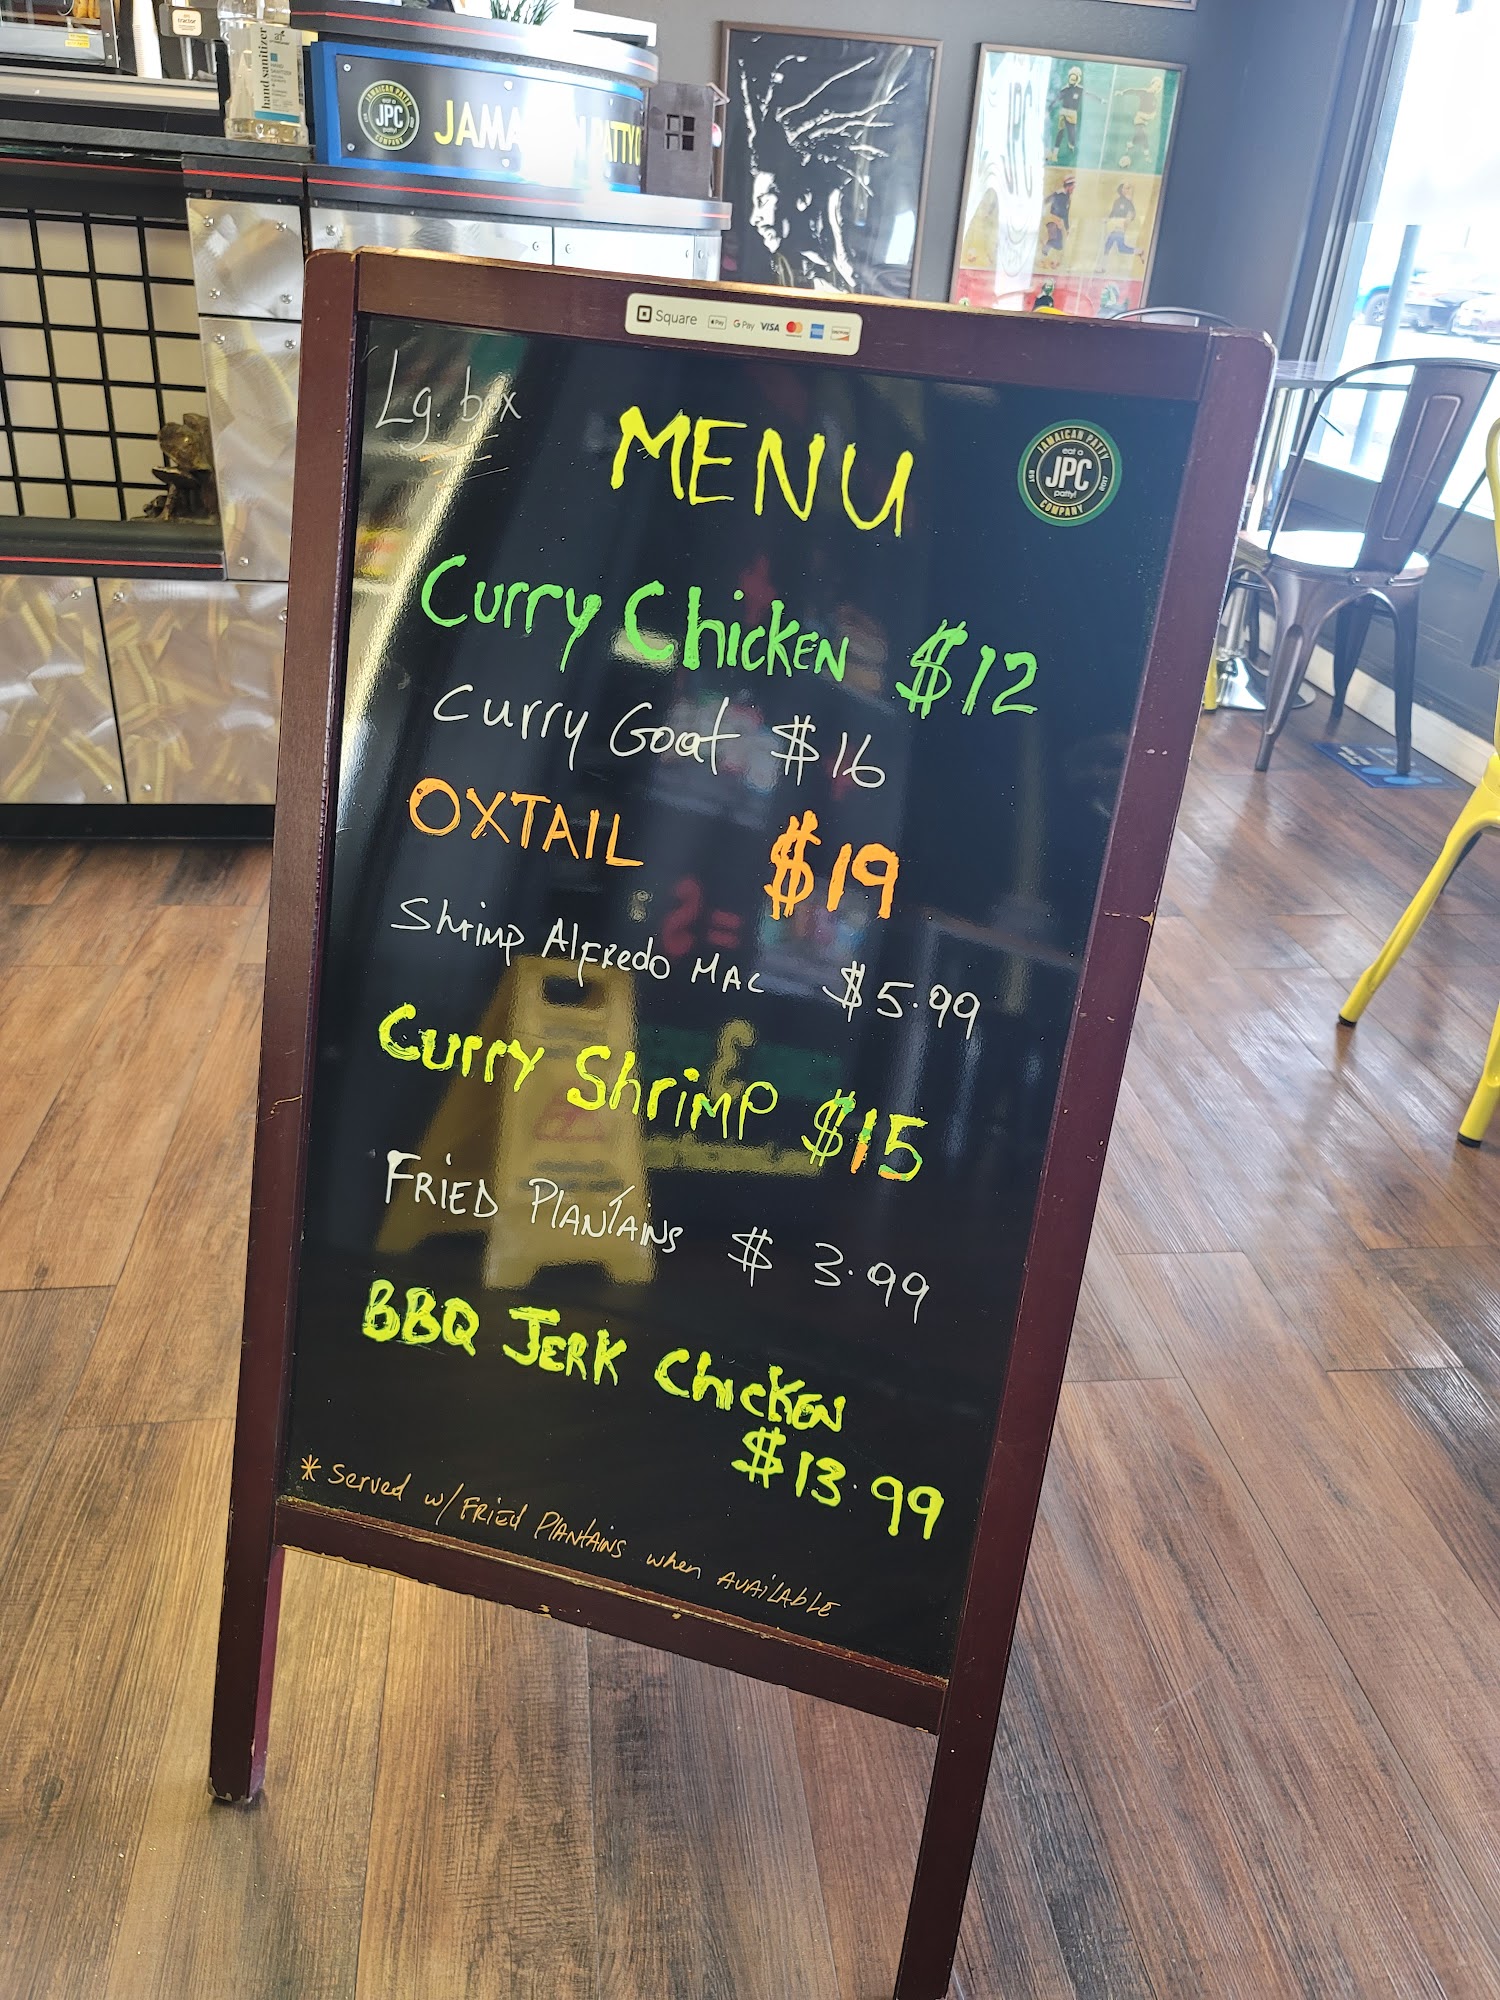 hand sanitizer
JAMAICAN PATTY
eat a
JPC
patty!
COMPANY
JPC
Square Pay G Pay VISA
Lg. box
MENU
JAMAICAN PATTY
eat a
EST JPC 2007
patty!
COMPANY
Curry Chicken $12
Curry Goat $16
OXTAIL $19
Shrimp Alfredo MAC $5.99
Curry Shrimp $15
FRIED PlANTAiNS $ 3.99
BBQ JERK ChicKEN
$13.99
* Served w/ FRiEd PlANtAiNS when AVAiLAbLE